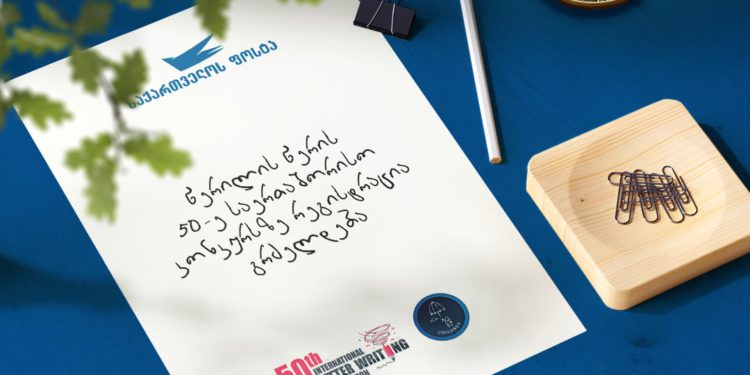 საქართველოს ფოსტა
წერილის წერის
50-ე საერთაშორისო
კონკურსზე რეგისტრაცია
გრძელდება
50th
INTERNATIONAL
LETTER WRITING